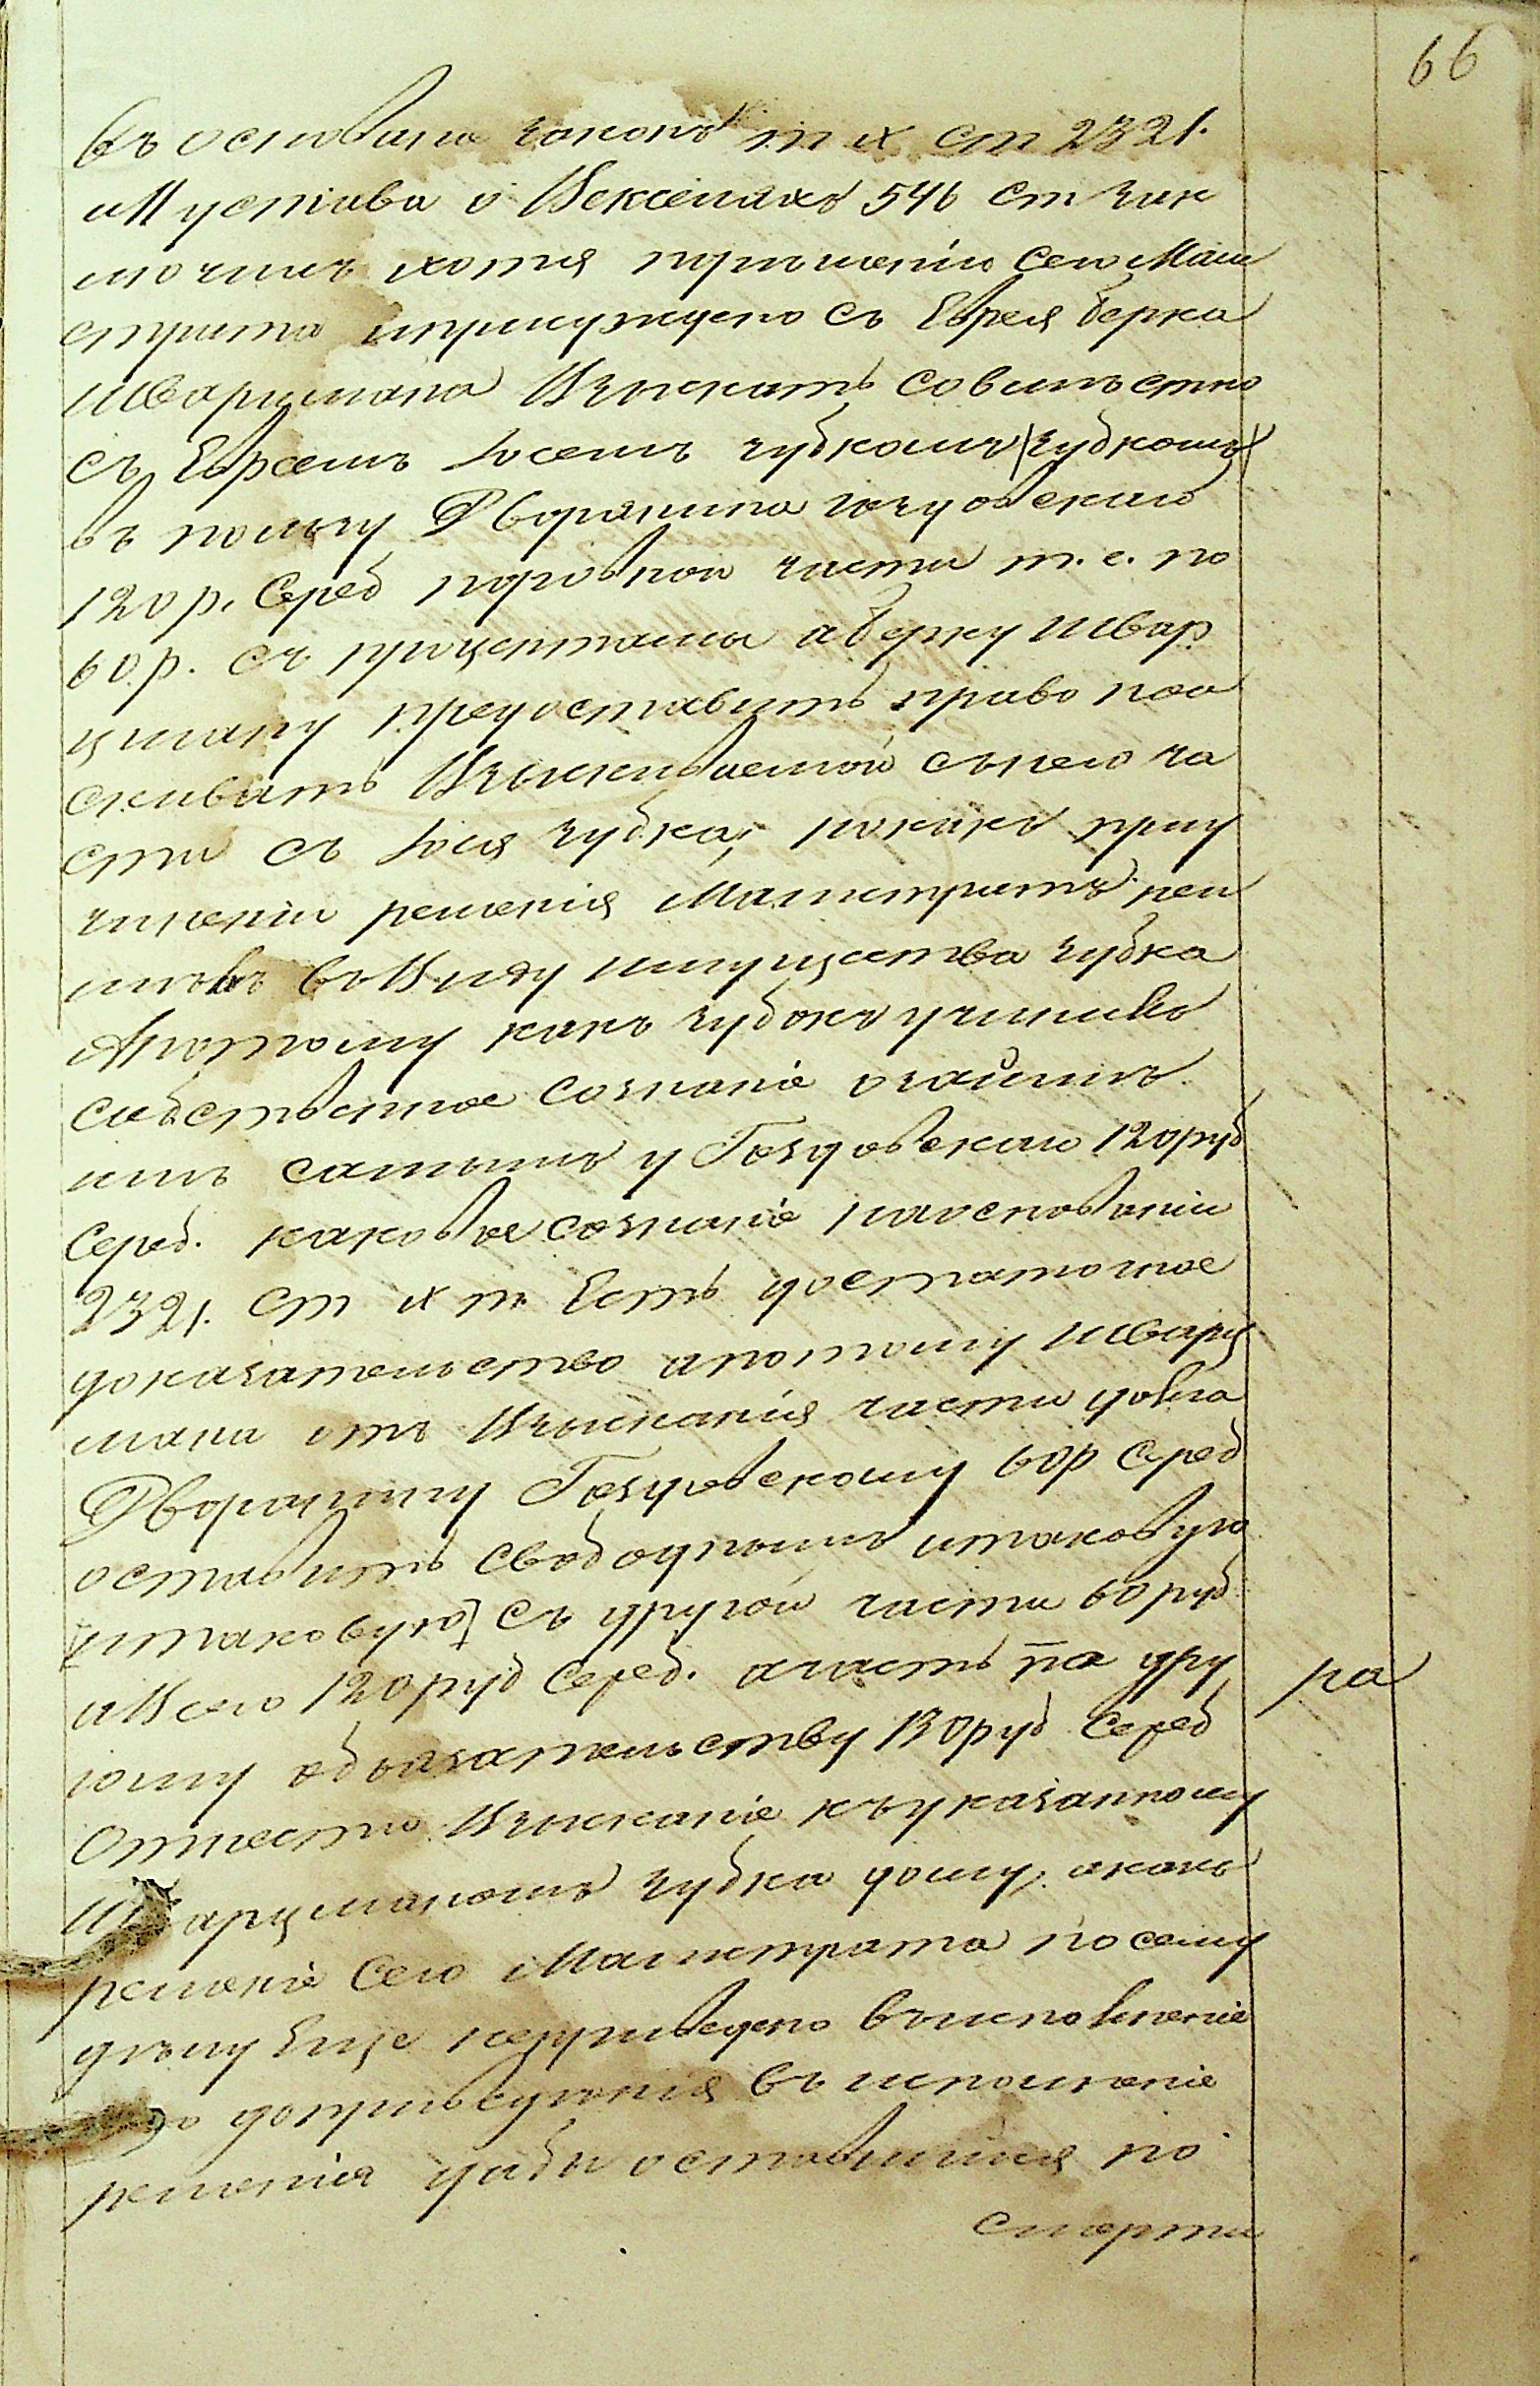 66
въ основаніе законъ т IX ст 2321.
и Устава о Векселяхъ 546 ст Зак
лючилъ хотя прѣшенію Сего Маги
страта и присуждено съ Еврея Берка
Шварцмана Взыскать совмѣстно
съ Евреемъ Іосемъ Зубкомъ (Зубкомъ)
въ пользу Дворянина
120 р. Сереб поровной части т. е. по
60 р. съ процентами а Берку Швар
цману предоставить право пои
скивать Взыскиваемой съ него ча
сти съ Іося Зубка, но какъ при у
чиненіи решенія Магистратъ неи
мѣлъ въ Виду имущества Зубка
А потому какъ Зубокъ учинилъ
собственное сознаніе о займѣ
имъ самымъ у Гоздовскаго 120 руб
Сереб. каковое сознаніе на основаніи
2321. ст X т Есть достаточное
доказательство а потому Шварц
мана отъ Взысканія части долга
Дворянину Гоздовскому 60 р Сереб
оставить свободнымъ и таковую
[и таковую] съ другой части 60 руб
и Всего 120 руб Сереб. а часть па дру ра
гому обязательству 130 руб Сереб
Отнестъ Взысканіе къ указанному
Шварцманомъ Зубка дому, а какъ
решеніе Сего Магистрата по сему
дѣлу Еще неприведено въ исполненіе
то до приведенія въ исполненіе
решенія дабы оставшійся по
смерти